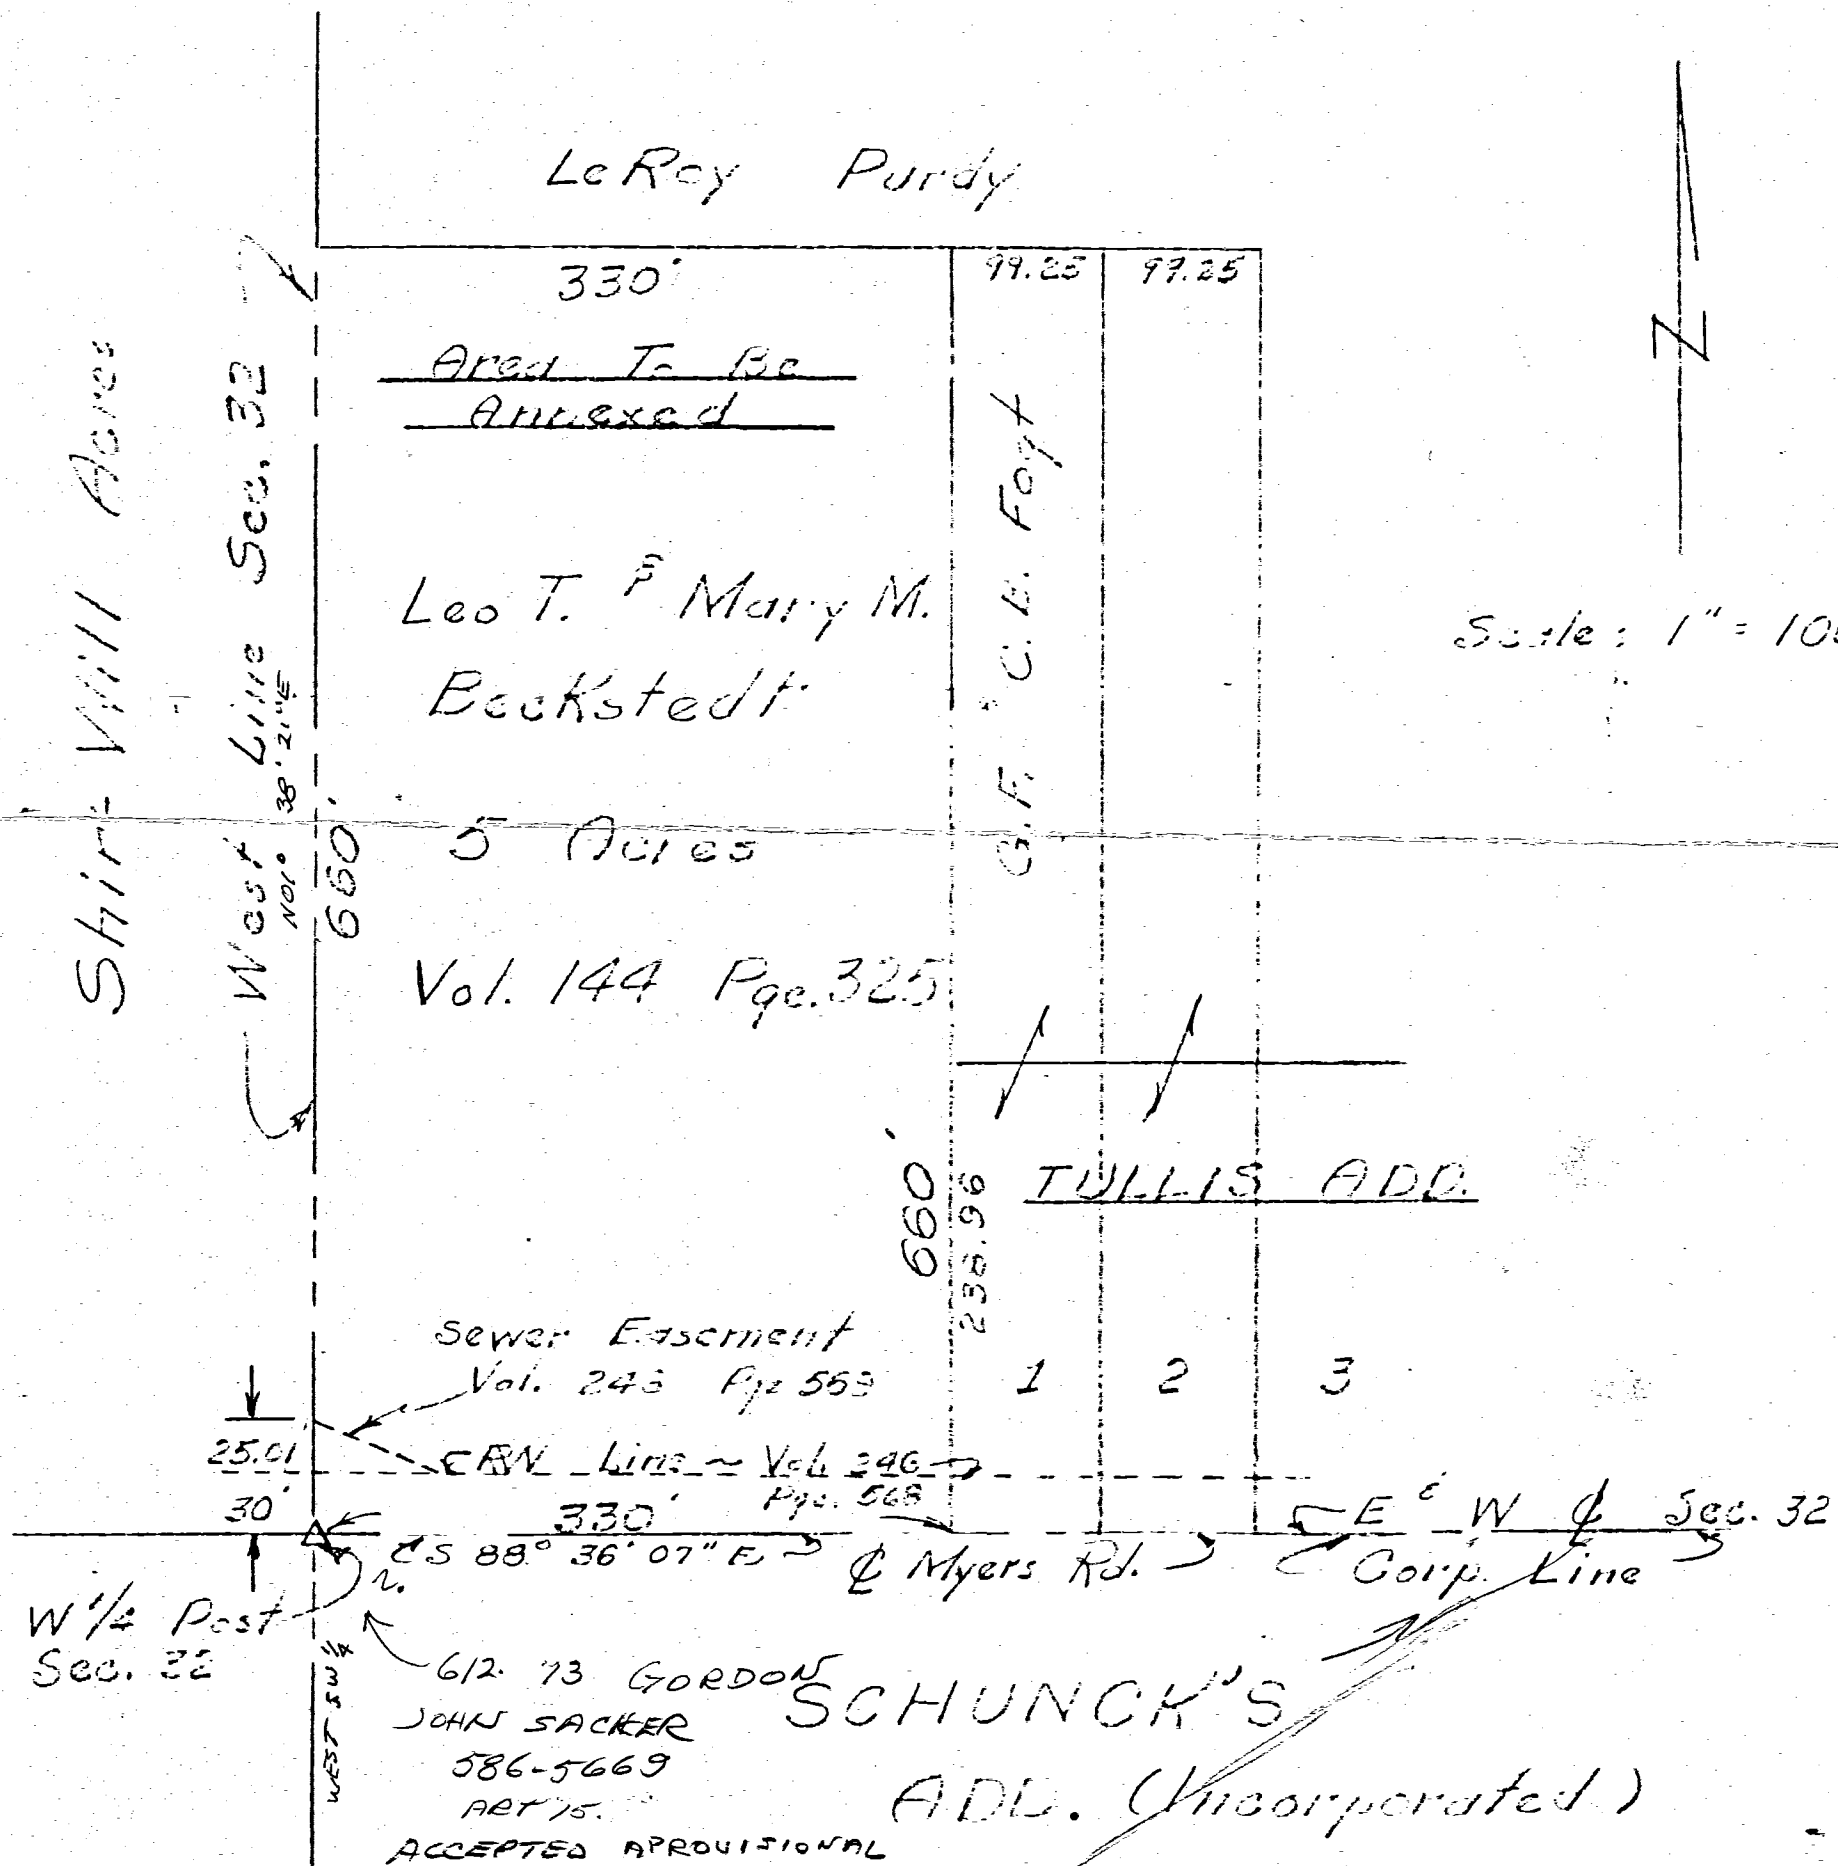 LeRoy Purdy
330'
99.25 99.25
Area To Be
Annexed
Shir-Will Acres
West Line Sec. 32
N01° 38' 21"E
660'
Leo T. & Mary M.
Beckstedt
5 Acres
Vol. 144 Pge. 325
G.F. & C.B. Fogt
N
Scale: 1" = 10
660'
238.96
TULLIS ADD.
1 2 3
Sewer Easement
Vol. 246
25.01
Line ~ Vol. 246
Pge. 568
30'
330'
S 88° 36' 07" E
₵ Myers Rd.
E & W ₵ Sec. 32
Corp. Line
W 1/4 Post
Sec. 32
WEST SW 1/4
612. 73 GORDON
JOHN SACKER
586-5669
ACCEPTED APROVISIONAL
SCHUNCK'S
ADD. (Incorporated)